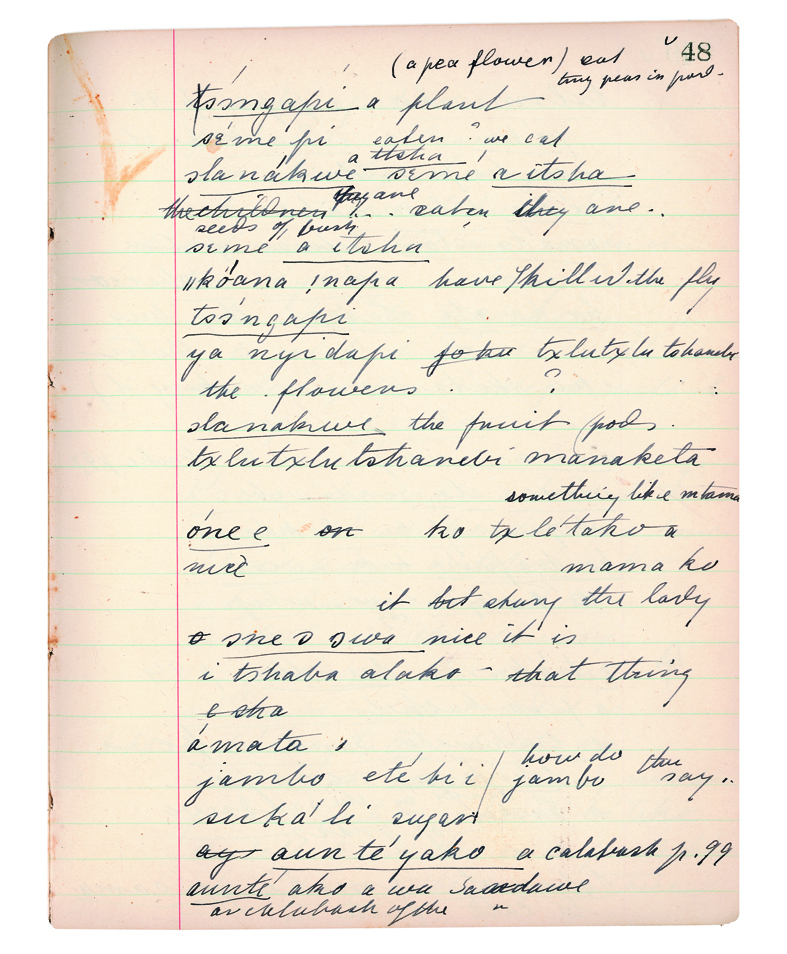 (a pea flower) eat 48
tiny peas in pod-
tsʼngapi a plant
séme pi eaten ? we eat
a itsha
slanákwe seme a itsha
the children .. eaten they are..
seeds of bush
seme a itsha
"kóana !napa have killed the fly
tsʼngapi
ya nyidapi txlutxlutshanebi
the flowers . ?
slanakwe the fruit (pods.
txlutxlutshanebi manaketa
something like mtama
óne e on ko txlétako a
nice mama ko
it bit stung the lady
o sne o swa nice it is
i tshaba alako - that thing
e sha
ámata
how do they
jambo eté bi i / jambo say..
suká li sugar
ays aunté yako a calabash p.99
aunté ako a wa Saandawe
a calabash of the "